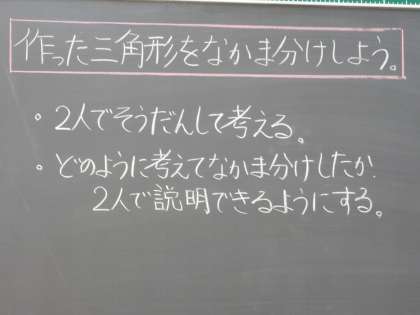 作った三角形をなかま分けしよう。
・2人でそうだんして考える。
・どのように考えてなかま分けしたか
2人で説明できるようにする。